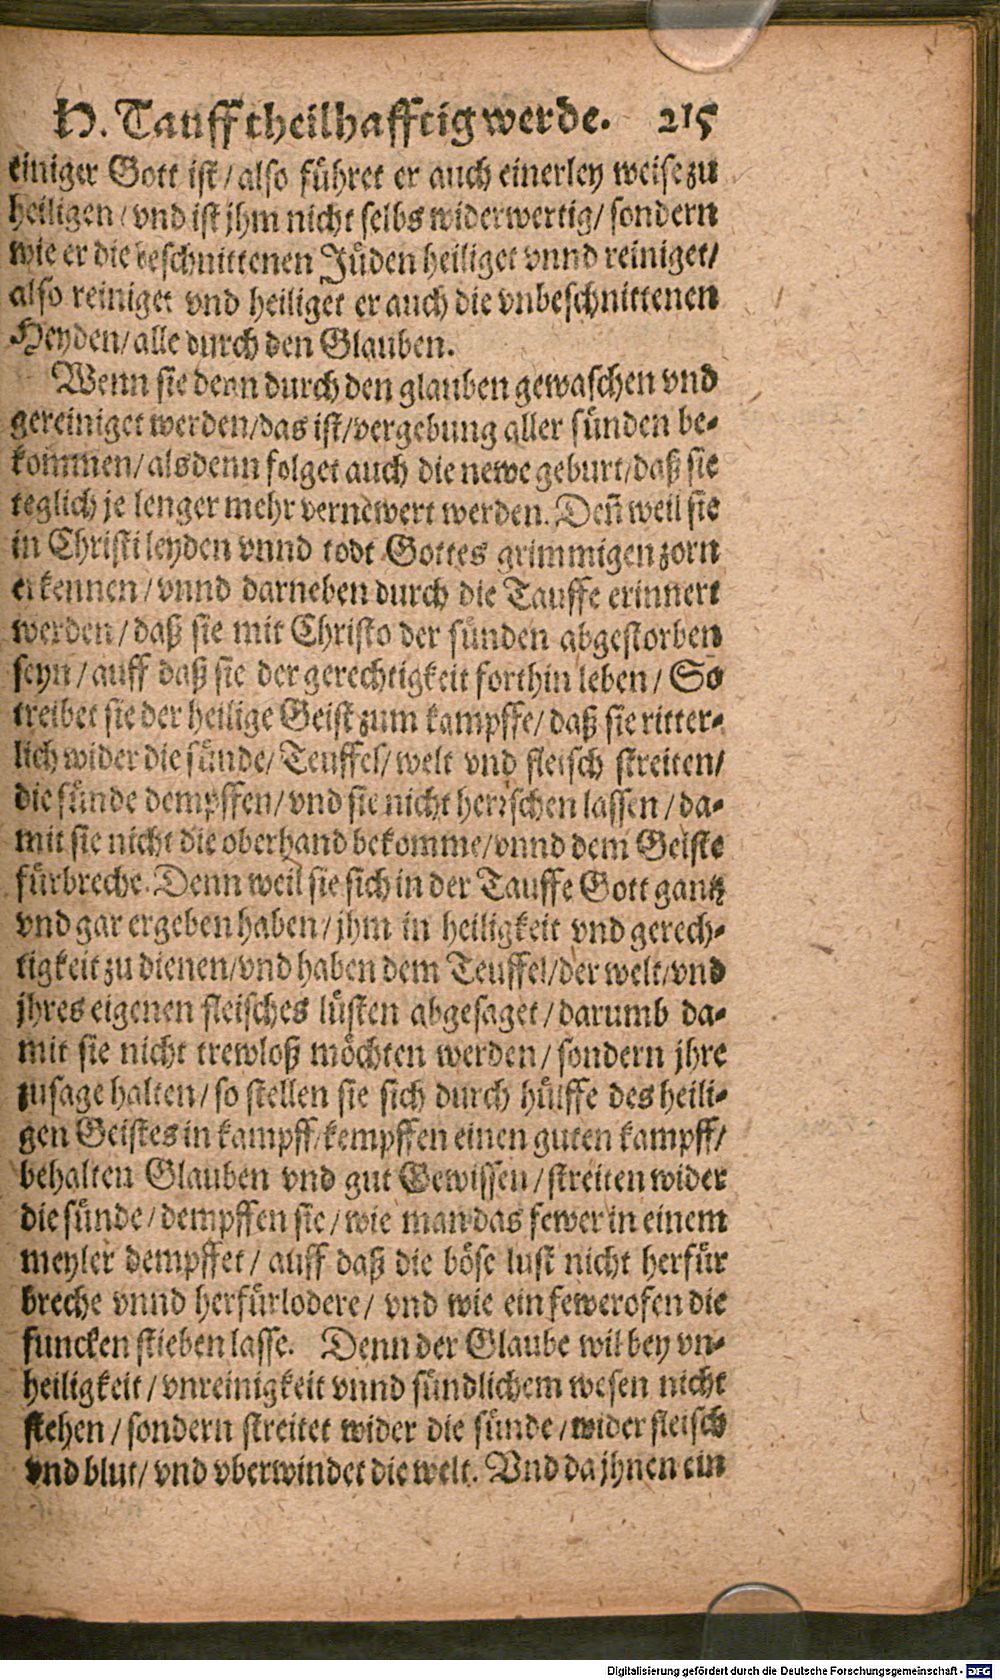 H. Tauff theilhafftig werde. 215
einiger Gott ist / also führet er auch einerley weise zu
heiligen / vnd ist jhm nicht selbs widerwertig / sondern
wie er die beschnittenen Jüden heiliget vnnd reiniget /
also reiniget vnd heiliget er auch die vnbeschnittenen
Heyden / alle durch den Glauben.
Wenn sie denn durch den glauben gewaschen vnd
gereiniget werden / das ist / vergebung aller sünden be-
kommen / alsdenn folget auch die newe geburt / daß sie
teglich je lenger mehr vernewert werden. Deñ weil sie
in Christi leyden vnnd todt Gottes grimmigen zorn
erkennen / vnnd darneben durch die Tauffe erinnert
werden / daß sie mit Christo der sünden abgestorben
seyn / auff daß sie der gerechtigkeit forthin leben / So
treibet sie der heilige Geist zum kampffe / daß sie ritter-
lich wider die sünde / Teuffel / welt vnd fleisch streiten /
die sünde dempffen / vnd sie nicht herrschen lassen / da-
mit sie nicht die oberhand bekomme / vnnd dem Geiste
fürbreche. Denn weil sie sich in der Tauffe Gott gantz
vnd gar ergeben haben / jhm in heiligkeit vnd gerech-
tigkeit zu dienen / vnd haben dem Teuffel / der welt / vnd
jhres eigenen fleisches lüsten abgesaget / darumb da-
mit sie nicht trewloß möchten werden / sondern jhre
zusage halten / so stellen sie sich durch hülffe des heili-
gen Geistes in kampff / kempffen einen guten kampff /
behalten Glauben vnd gut Gewissen / streiten wider
die sünde / dempffen sie / wie man das fewer in einem
meyler dempffet / auff daß die böse lust nicht herfür
breche vnnd herfürlodere / vnd wie ein fewerofen die
funcken stieben lasse. Denn der Glaube wil bey vn-
heiligkeit / vnreinigkeit vnnd sündlichem wesen nicht
stehen / sondern streitet wider die sünde / wider fleisch
vnd blut / vnd vberwindet die welt. Vnd da jhnen ein
Digitalisierung gefördert durch die Deutsche Forschungsgemeinschaft - DFG